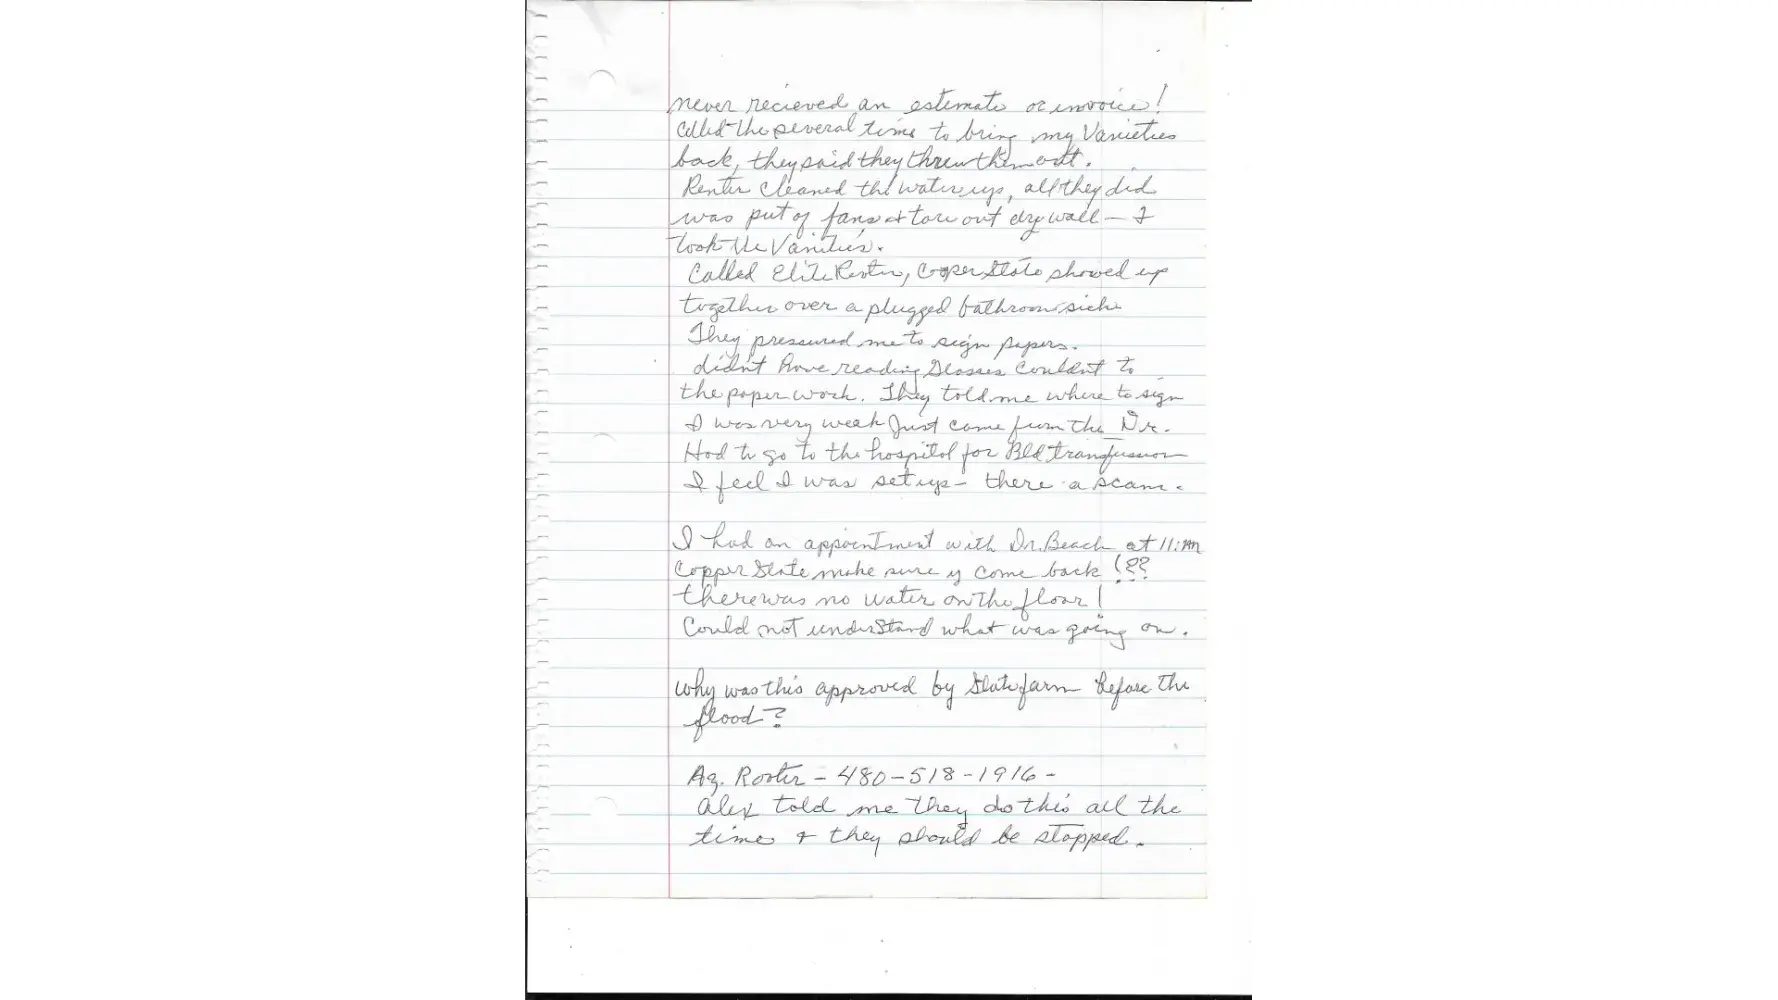 never recieved an estimate or invoice!
Called the several time to bring my Vanieties
back, they said they threw them out.
Renter cleaned the water up, all they did
was put of fans & tore out dry wall – I
took the Vanities.
Called Elite Rooter, Cooper State showed up
together over a plugged bathroom sick
They pressured me to sign papers.
didn't have reading Glasses Couldnt to
the paper work. They told me where to sign
I was very weak Just came from the Dr.
Had to go to the hospital for Bld transfusion
I feel I was set up – there a scam.
I had an appointment with Dr. Beach at 11:
Copper State make sure y come back !??
there was no water on the floor!
Could not understand what was going on.
why was this approved by Statefarm before the
flood?
Az. Rooter – 480–518–1916 –
Alex told me they do this all the
times & they should be stopped.